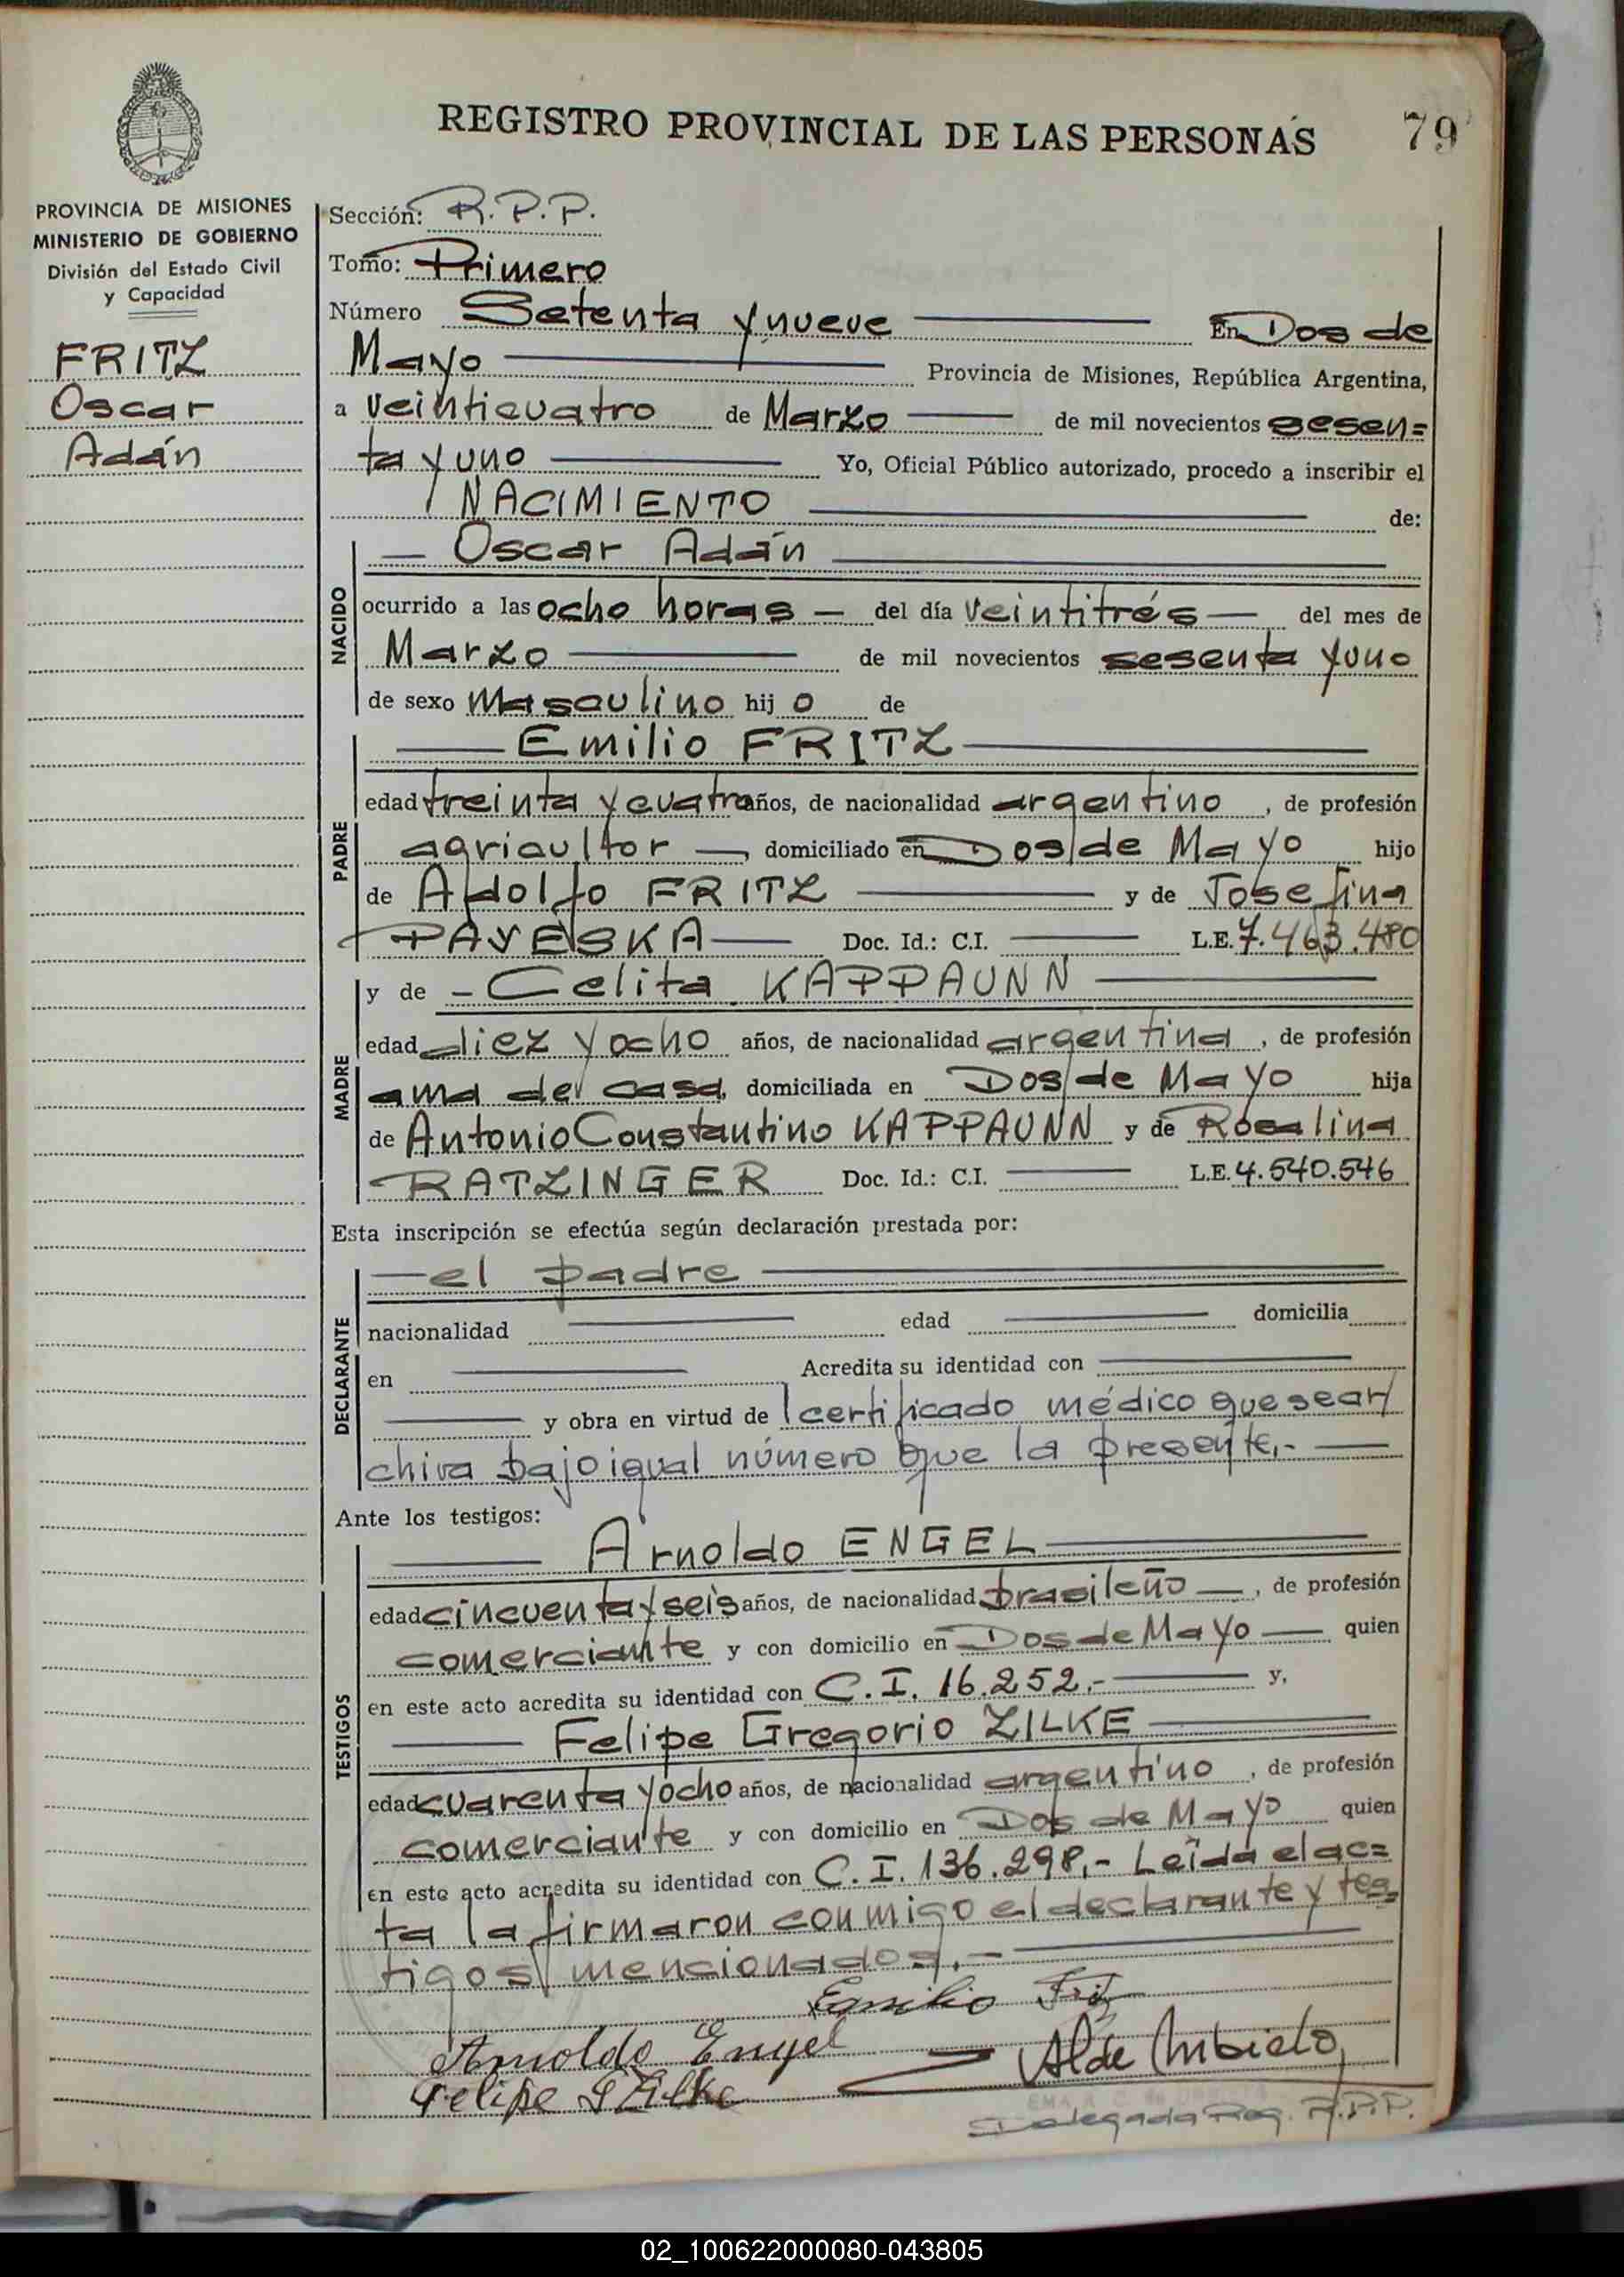 REGISTRO PROVINCIAL DE LAS PERSONAS 79
PROVINCIA DE MISIONES
MINISTERIO DE GOBIERNO
División del Estado Civil
y Capacidad
FRITZ
Oscar
Adán
Sección: R.P.P.
Tomo: Primero
Número Setenta y nueve En Dos de
Mayo Provincia de Misiones, República Argentina,
a veinticuatro de Marzo de mil novecientos sesen=
ta y uno Yo, Oficial Público autorizado, procedo a inscribir el
NACIMIENTO de:
NACIDO
Oscar Adán
ocurrido a las ocho horas — del día veintitrés — del mes de
Marzo de mil novecientos sesenta y uno
de sexo masculino hij o de
PADRE
Emilio FRITZ
edad treinta y cuatro años, de nacionalidad argentino, de profesión
agricultor —, domiciliado en Dos de Mayo hijo
de Adolfo FRITZ y de Josefina
PAYESKA — Doc. Id.: C.I. — L.E. 7.463.480
MADRE
y de - Celita KAPPAUNN
edad diez y ocho años, de nacionalidad argentina, de profesión
ama de casa, domiciliada en Dos de Mayo hija
de Antonio Constantino KAPPAUNN y de Rosalina
RATZINGER Doc. Id.: C.I. — L.E. 4.540.546
Esta inscripción se efectúa según declaración prestada por:
DECLARANTE
— el padre
nacionalidad — edad — domicilia
en — Acredita su identidad con —
— y obra en virtud de certificado médico que se ar
chiva bajo igual número que la presente.-
Ante los testigos:
TESTIGOS
Arnoldo ENGEL
edad cincuenta y seis años, de nacionalidad brasileño —, de profesión
comerciante y con domicilio en Dos de Mayo — quien
en este acto acredita su identidad con C.I. 16.252.- y,
Felipe Gregorio ZILKE
edad cuarenta y ocho años, de nacionalidad argentino, de profesión
comerciante y con domicilio en Dos de Mayo quien
en este acto acredita su identidad con C.I. 136.298.- Leída el ac=
ta la firmaron conmigo el declarante y tes=
tigos mencionados.-
Emilio Friz
Arnoldo Engel
Felipe G Zilke
Delegada Reg. R.P.P.
02_100622000080-043805